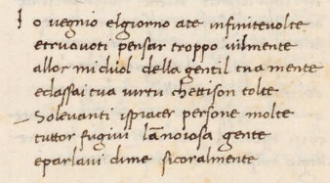 I o vegnio elgiorno ate infinitevolte
etruovoti pensar troppo vilmente
allor midiol della gentil tua mente
edassai tua virtu chettison tolte
Solevanti ispiacer persone molte
tuttor fugivi lanoiosa gente
eparlavi dime sicoralmente